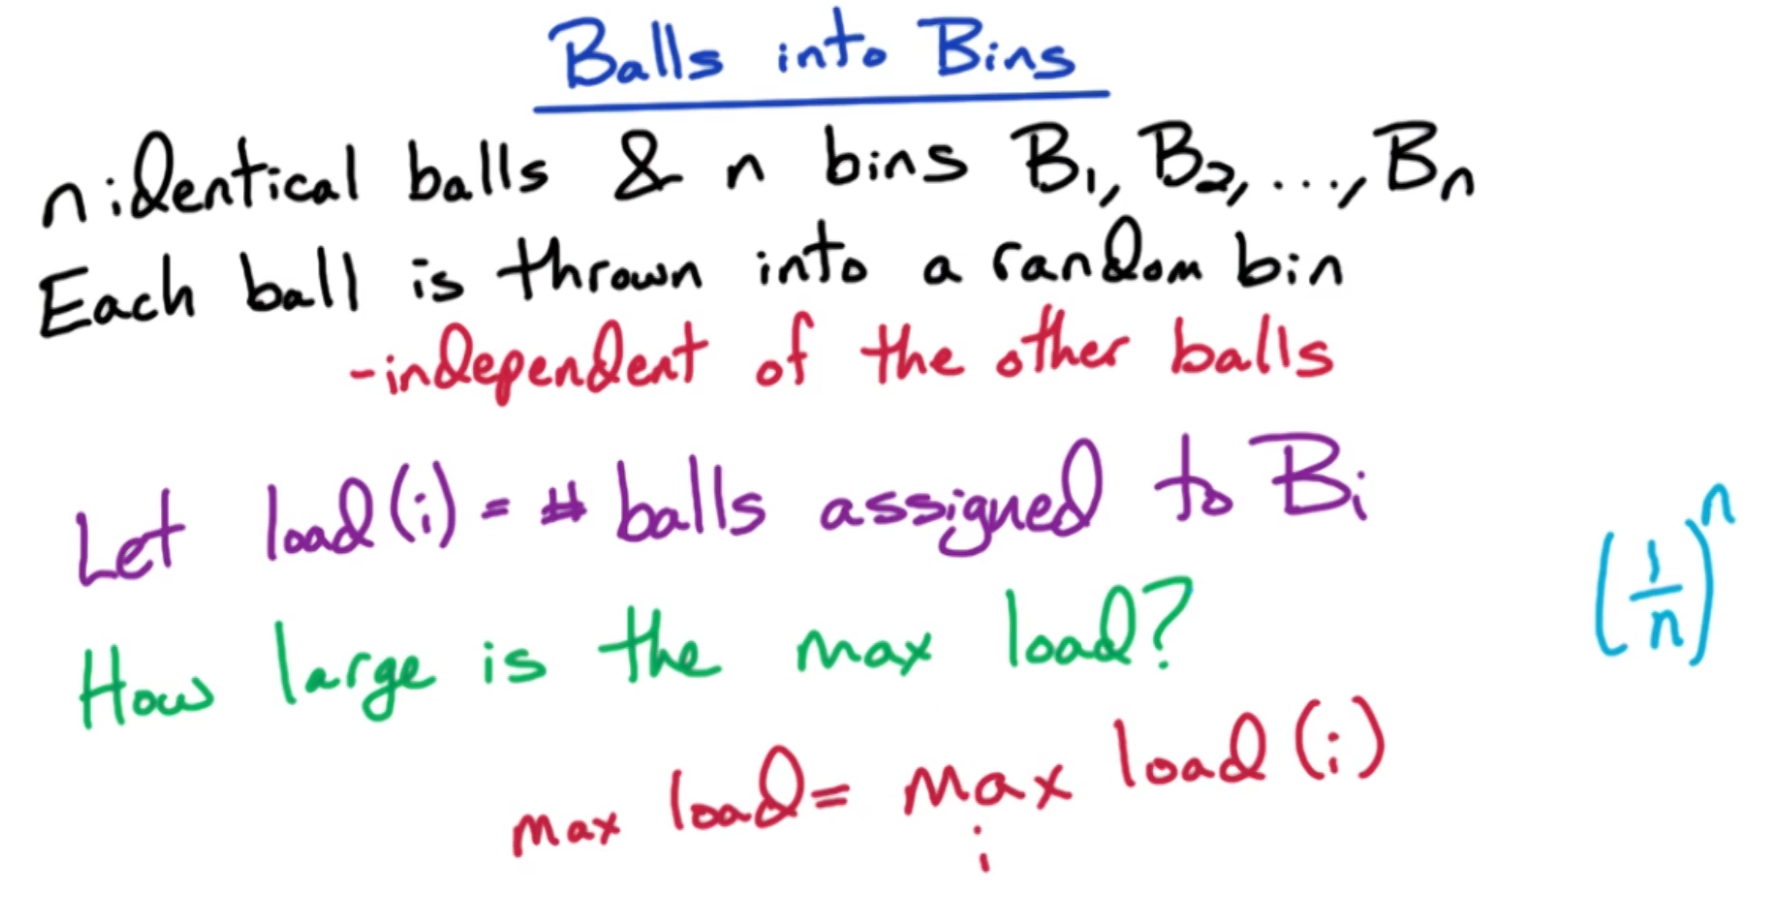 Balls into Bins
n identical balls & n bins B₁, B₂, ..., Bₙ
Each ball is thrown into a random bin
-independent of the other balls
Let load(i) = # balls assigned to Bᵢ
(1/n)ⁿ
How large is the max load?
max load = max load(i)
i